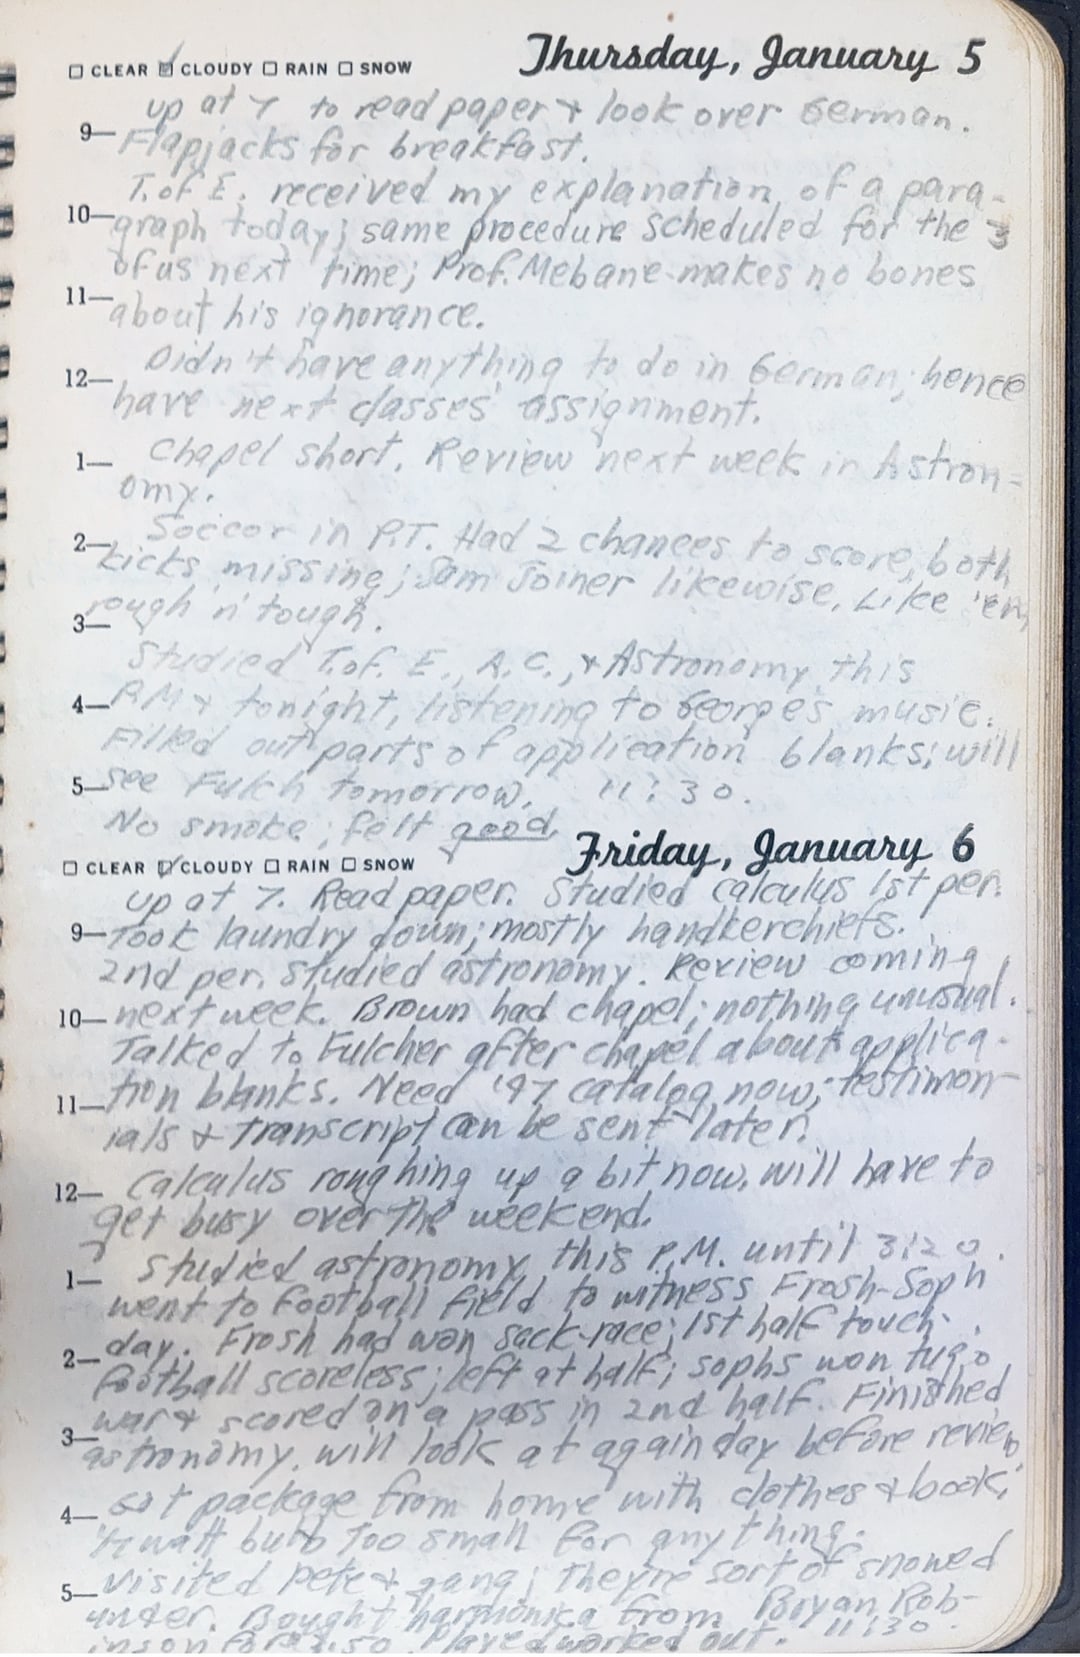 ☐ CLEAR ☑ CLOUDY ☐ RAIN ☐ SNOW Thursday, January 5
up at 7 to read paper & look over German.
9— Flapjacks for breakfast.
T. of E. received my explanation of a para-
10— graph today; same procedure scheduled for the 3
of us next time; Prof. Mebane makes no bones
11— about his ignorance.
Didn't have anything to do in German; hence
12— have next classes' assignment.
1— Chapel short. Review next week in Astron-
omy.
Soccor in P.T. Had 2 chances to score, both
2— kicks missing; Sam Joiner likewise. Like 'em
rough 'n' tough.
3—
Studied T. of E., A.C., & Astronomy this
4— P.M & tonight, listening to George's music.
Filled out parts of application blanks; will
5— see Fulch tomorrow. 11:30.
No smoke; felt good.
☐ CLEAR ☑ CLOUDY ☐ RAIN ☐ SNOW Friday, January 6
up at 7. Read paper. Studied calculus 1st per.
9— Took laundry down; mostly handkerchiefs.
2nd per. studied astronomy. Review coming
10— next week. Brown had chapel; nothing unusual.
Talked to Fulcher after chapel about applica-
11— tion blanks. Need '47 catalog now; testimon-
ials & transcript can be sent later.
12— Calculus roughing up a bit now, will have to
get busy over the weekend.
1— Studied astronomy this P.M. until 3:20.
went to football field to witness Frosh-Soph
2— day. Frosh had won sack-race; 1st half touch-
football scoreless; left at half; sophs won tug o
war & scored on a pass in 2nd half. Finished
3— astronomy, will look at again day before review
4— Got package from home with clothes & book;
watt bulb too small for anything.
5— Visited Pete & gang; they're sort of snowed
under. Bought harmonika from Bryan Rob-
inson for 2.50. Played worked out. 11:30.